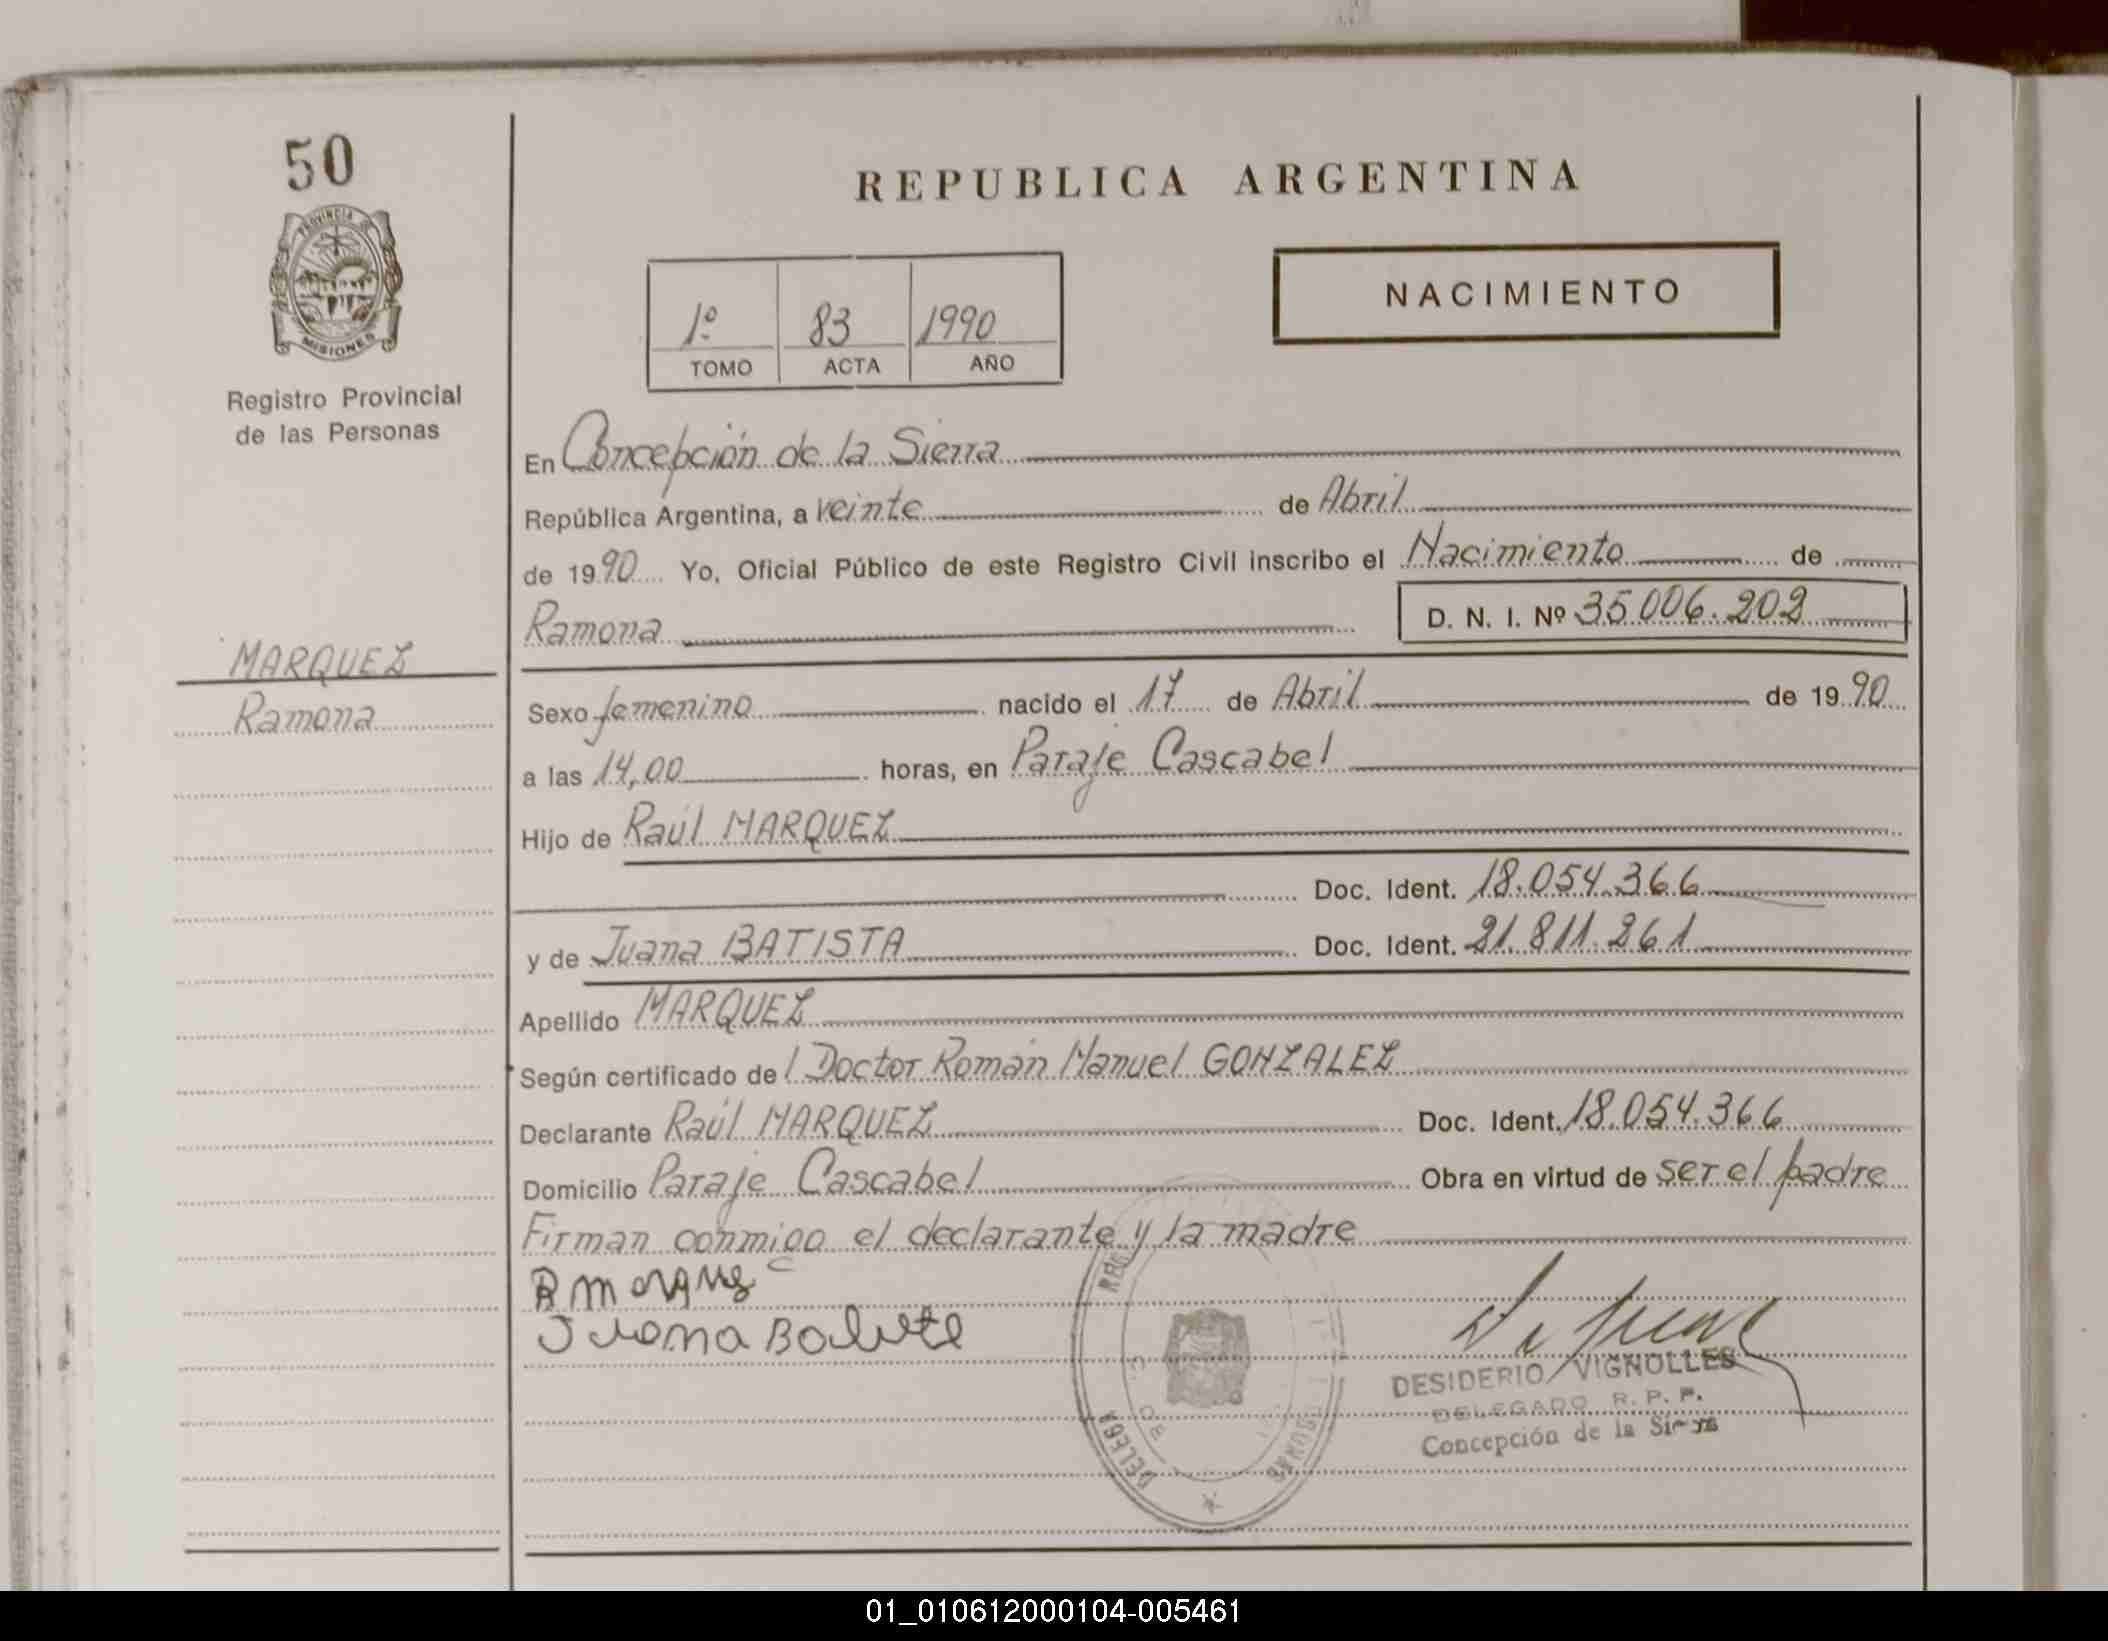 50
PROVINCIA DE
MISIONES
Registro Provincial
de las Personas
MARQUEZ
Ramona
REPUBLICA ARGENTINA
1º 83 1990
TOMO ACTA AÑO
NACIMIENTO
En Concepción de la Sierra
República Argentina, a veinte de Abril
de 1990 Yo, Oficial Público de este Registro Civil inscribo el Nacimiento de
Ramona D. N. I. Nº 35.006.202
Sexo femenino nacido el 17 de Abril de 1990
a las 14,00 horas, en Paraje Cascabel
Hijo de Raúl MARQUEZ
Doc. Ident. 18.054.366
y de Juana BATISTA Doc. Ident. 21.811.261
Apellido MARQUEZ
Según certificado del Doctor Román Manuel GONZALEZ
Declarante Raúl MARQUEZ Doc. Ident. 18.054.366
Domicilio Paraje Cascabel Obra en virtud de ser el padre
Firman conmigo el declarante y la madre
R marquez
Juana
DESIDERIO VIGNOLLES
DELEGADO R. P. P.
Concepción de la Sierra
01_010612000104-005461